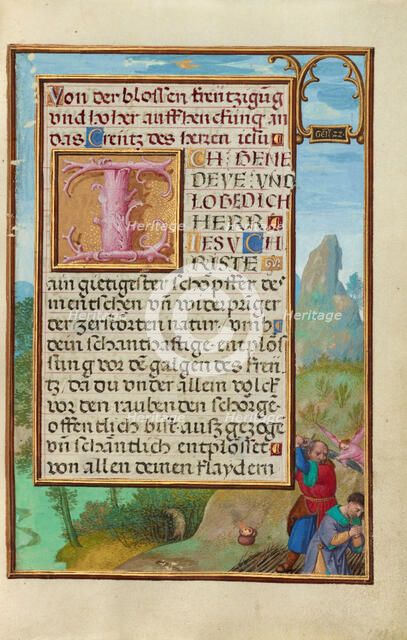 Von der blossen kreützigung
und hoher auffhenckung an
das Creütz des herzen iesu
Gen 22
ICH BENE
DEYE VND
LOBEDICH
HERR
IESV CH
RISTE
ain gietigister schöpffer des
mentschen vn̄ widerprīger
der zerstorten natur, vmb
dein schanthafftige entplös
sung vor dē galgen des kreü
tz, da du vnder allem volck
vor den rauben den schorge
offentlich bist ausz gezogē
vn̄ schantlich entplösset
von allen deinen klaydern
Heritage
Heritage
Heritage
Heritage
Heritage